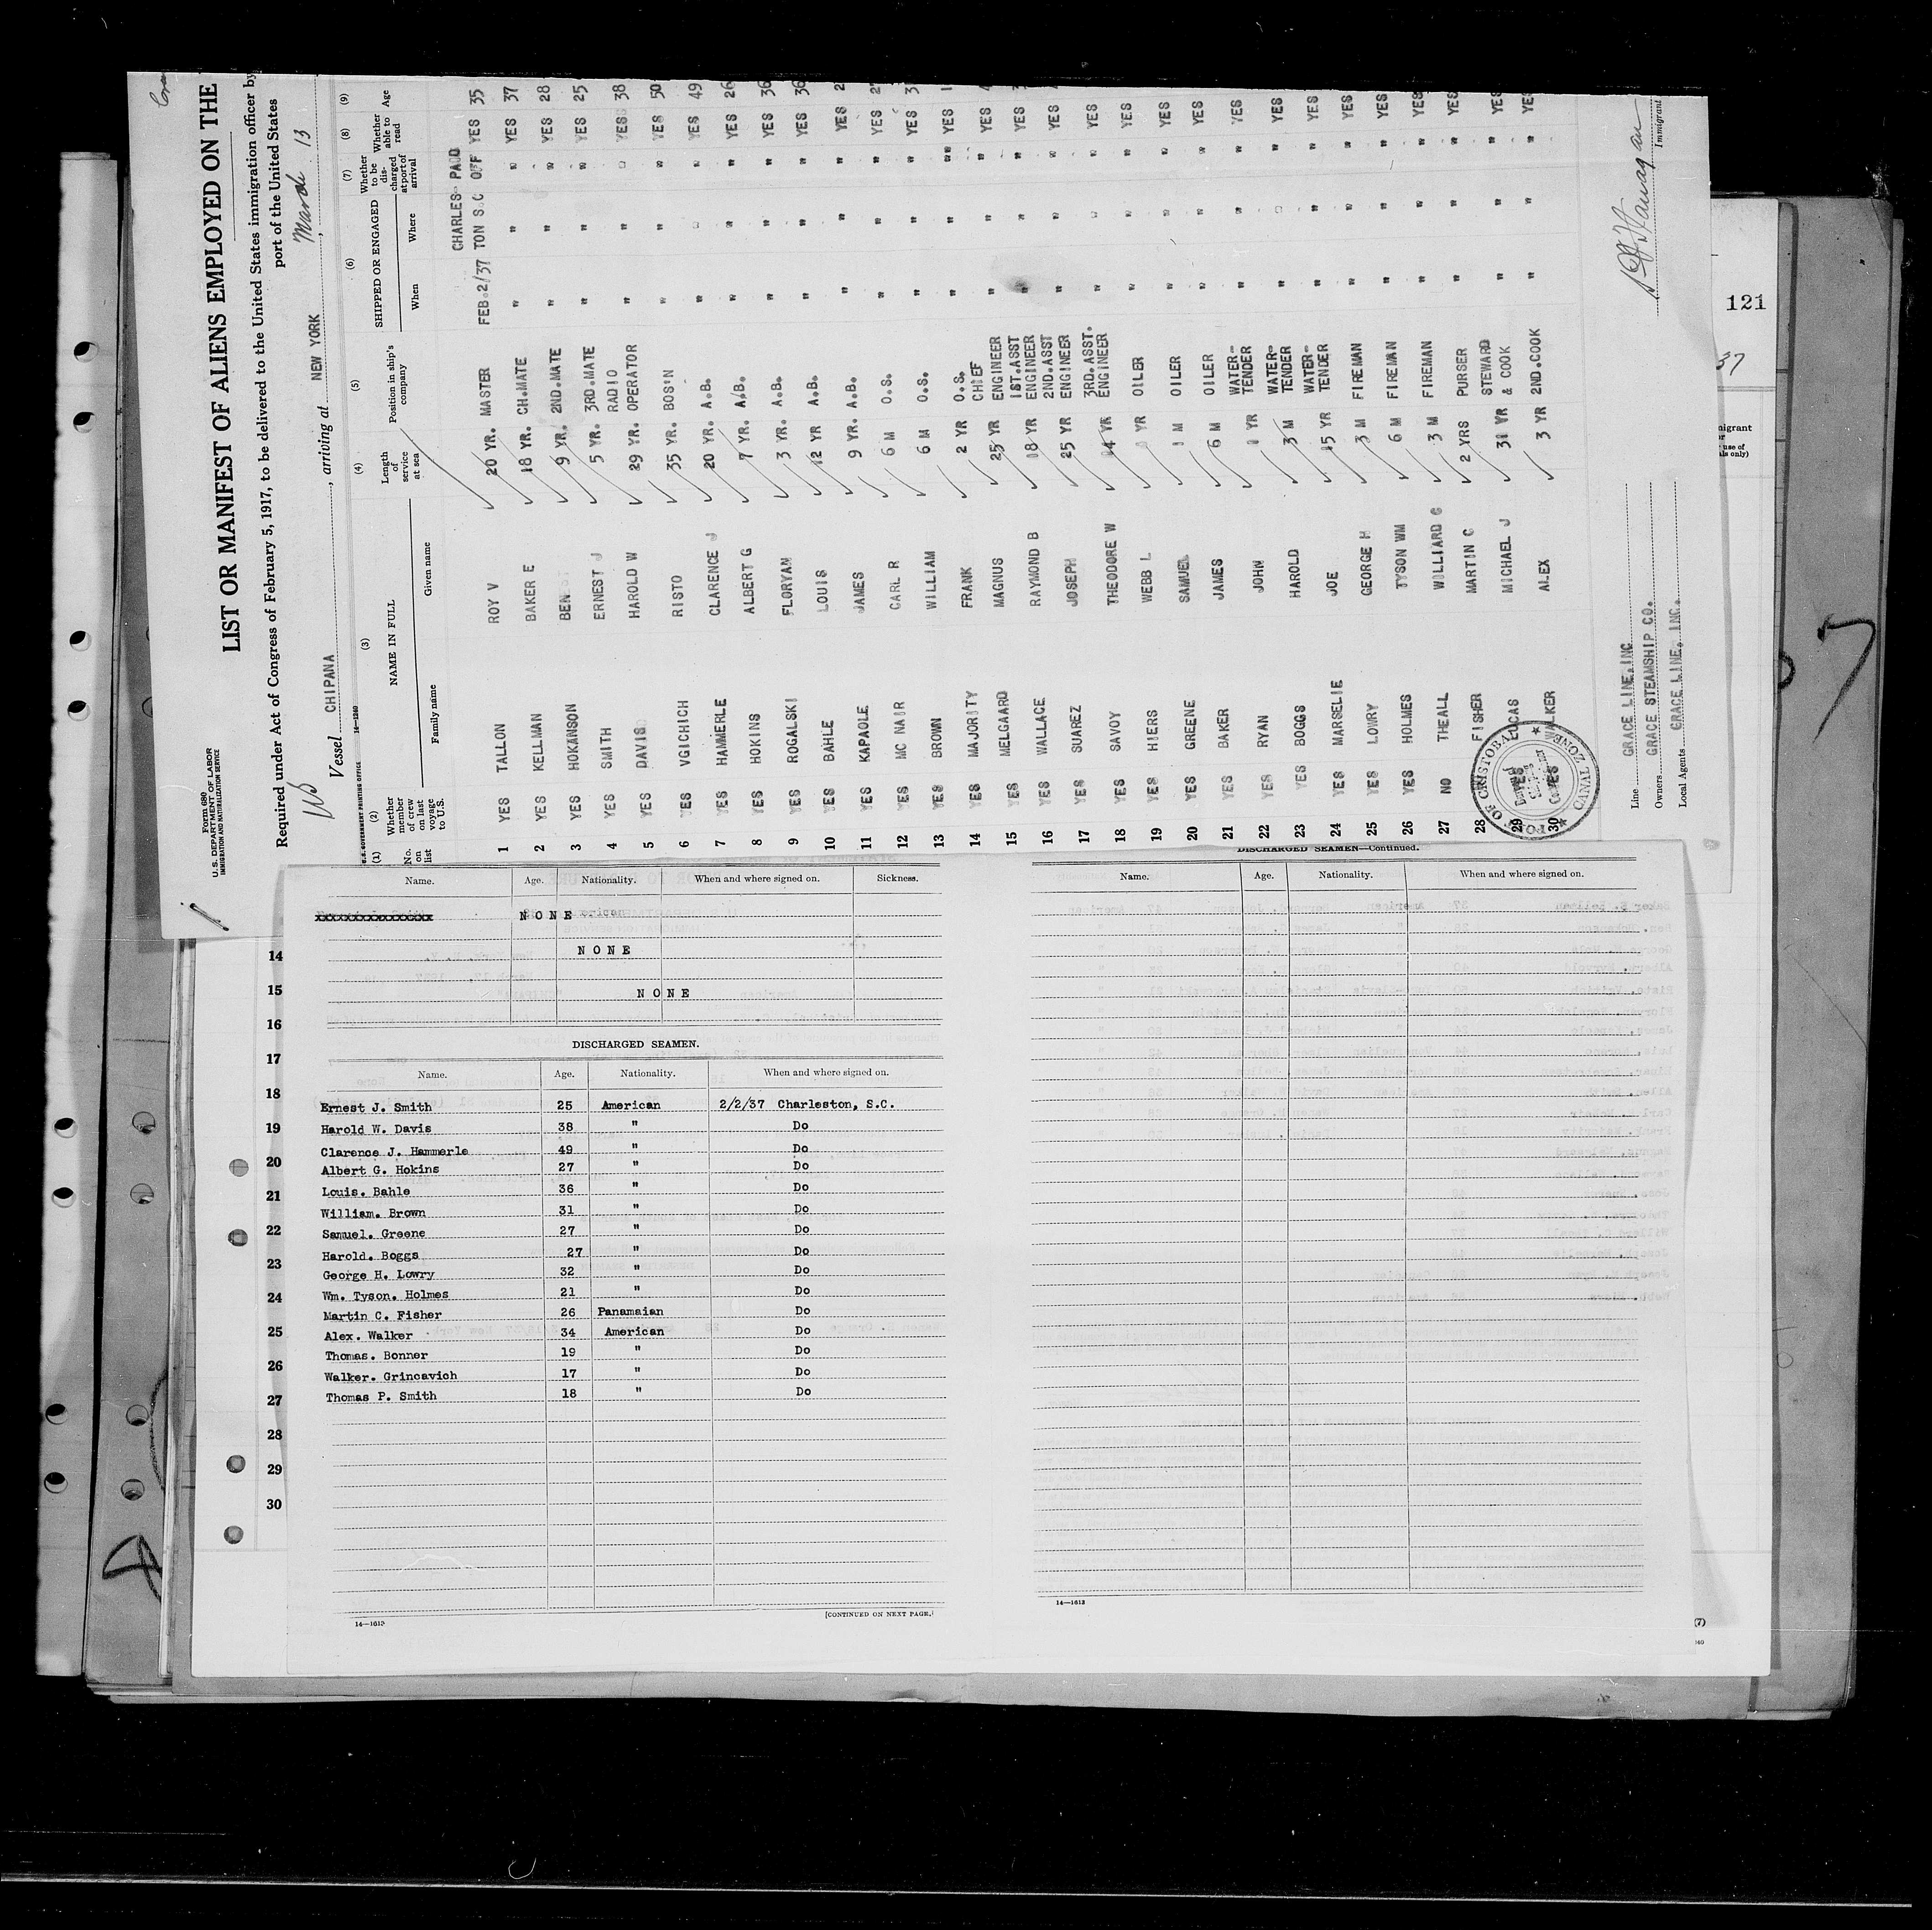 Form 680
U. S. DEPARTMENT OF LABOR
IMMIGRATION AND NATURALIZATION SERVICE
LIST OR MANIFEST OF ALIENS EMPLOYED ON THE
Required under Act of Congress of February 5, 1917, to be delivered to the United States immigration officer by
port of the United States
Vessel CHIPANA, arriving at NEW YORK, March 13
U.S. GOVERNMENT PRINTING OFFICE 14—1240
(1) (2) (3) (4) (5) (6) (7) (8) (9)
No. on list
Whether member of crew on last voyage to U.S.
NAME IN FULL
Family name Given name
Length of service at sea
Position in ship's company
SHIPPED OR ENGAGED
When Where
Whether to be discharged at port of arrival
Whether able to read
Age
CHARLES- PAID
1 YES TALLON ROY V 20 YR. MASTER FEB.2/37 TON S.C OFF YES 35
2 YES KELLMAN BAKER E 18 YR. CH.MATE " " " YES 37
3 YES HOKANSON BEN 9 YR. 2ND.MATE " " " YES 28
4 YES SMITH ERNEST J 5 YR. 3RD.MATE " " " YES 25
5 YES DAVIS HAROLD W 29 YR. RADIO OPERATOR " " " YES 38
6 YES VGICHICH RISTO 35 YR. BOS'N " " " YES 50
7 YES HAMMERLE CLARENCE J 20 YR. A.B. " " " YES 49
8 YES HOKINS ALBERT G 7 YR. A.B. " " " YES 26
9 YES ROGALSKI FLORYAN 3 YR. A.B. " " " YES 36
10 YES BAHLE LOUIS 12 YR A.B. " " " YES 36
11 YES KAPAOLE JAMES 9 YR. A.B. " " " YES
12 YES MC NAIR CARL R 6 M O.S. " " " YES
13 YES BROWN WILLIAM 6 M O.S. " " " YES
14 YES MAJORITY FRANK 2 YR O.S. " " " YES
15 YES MELGAARD MAGNUS 25 YR CHIEF ENGINEER " " " YES
16 YES WALLACE RAYMOND B 18 YR 1ST.ASST ENGINEER " " " YES
17 YES SUAREZ JOSEPH 25 YR 2ND.ASST ENGINEER " " " YES
18 YES SAVOY THEODORE W 14 YR 3RD.ASST. ENGINEER " " " YES
19 YES HIERS WEBB L YR OILER " " " YES
20 YES GREENE SAMUEL M OILER " " " YES
21 YES BAKER JAMES 6 M OILER " " " YES
22 YES RYAN JOHN YR WATER-TENDER " " " YES
23 YES BOGGS HAROLD 3 M WATER-TENDER " " " YES
24 YES MARSELIE JOE 15 YR WATER-TENDER " " " YES
25 YES LOWRY GEORGE H 3 M FIREMAN " " " YES
26 YES HOLMES TYSON WM 6 M FIREMAN " " " YES
27 NO THEALL WILLIARD G 3 M FIREMAN " " " YES
28 FISHER MARTIN C 2 YRS PURSER " " " YES
29 YES LUCAS MICHAEL J 31 YR STEWARD & COOK " " " YES
30 YES WALKER ALEX 3 YR 2ND.COOK " " " YES
PORT OF CRISTOBAL
CANAL ZONE
Line GRACE LINE, INC
Owners GRACE STEAMSHIP CO.
Local Agents GRACE LINE, INC.
Immigrant
121
37
Name. Age. Nationality. When and where signed on. Sickness.
NONE
NONE
NONE
DISCHARGED SEAMEN.
Name. Age. Nationality. When and where signed on.
Ernest J. Smith 25 American 2/2/37 Charleston, S.C.
Harold W. Davis 38 " Do
Clarence J. Hammerle 49 " Do
Albert G. Hokins 27 " Do
Louis. Bahle 36 " Do
William. Brown 31 " Do
Samuel. Greene 27 " Do
Harold. Boggs 27 " Do
George H. Lowry 32 " Do
Wm. Tyson. Holmes 21 " Do
Martin C. Fisher 26 Panamaian Do
Alex. Walker 34 American Do
Thomas. Bonner 19 " Do
Walker. Grincavich 17 " Do
Thomas P. Smith 18 " Do
14—1613
[CONTINUED ON NEXT PAGE.]
DISCHARGED SEAMEN—Continued.
Name. Age. Nationality. When and where signed on.
14—1613
14
15
16
17
18
19
20
21
22
23
24
25
26
27
28
29
30
(7)